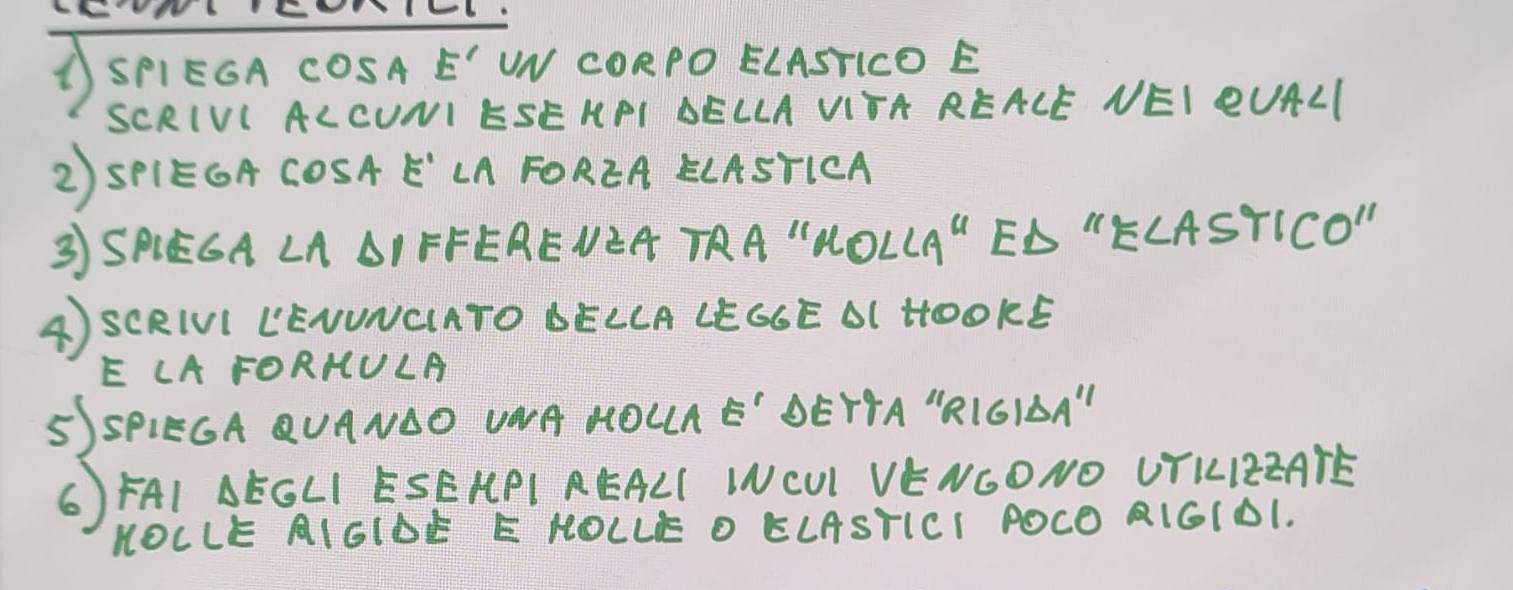 CENNI TEORICI:
1) SPIEGA COSA E' UN CORPO ELASTICO E
SCRIVI ALCUNI ESEMPI DELLA VITA REALE NEI QUALI
2) SPIEGA COSA E' LA FORZA ELASTICA
3) SPIEGA LA DIFFERENZA TRA "MOLLA" ED "ELASTICO"
4) SCRIVI L'ENUNCIATO DELLA LEGGE DI HOOKE
E LA FORMULA
5) SPIEGA QUANDO UNA MOLLA E' DETTA "RIGIDA"
6) FAI DEGLI ESEMPI REALI IN CUI VENGONO UTILIZZATE
MOLLE RIGIDE E MOLLE O ELASTICI POCO RIGIDI.